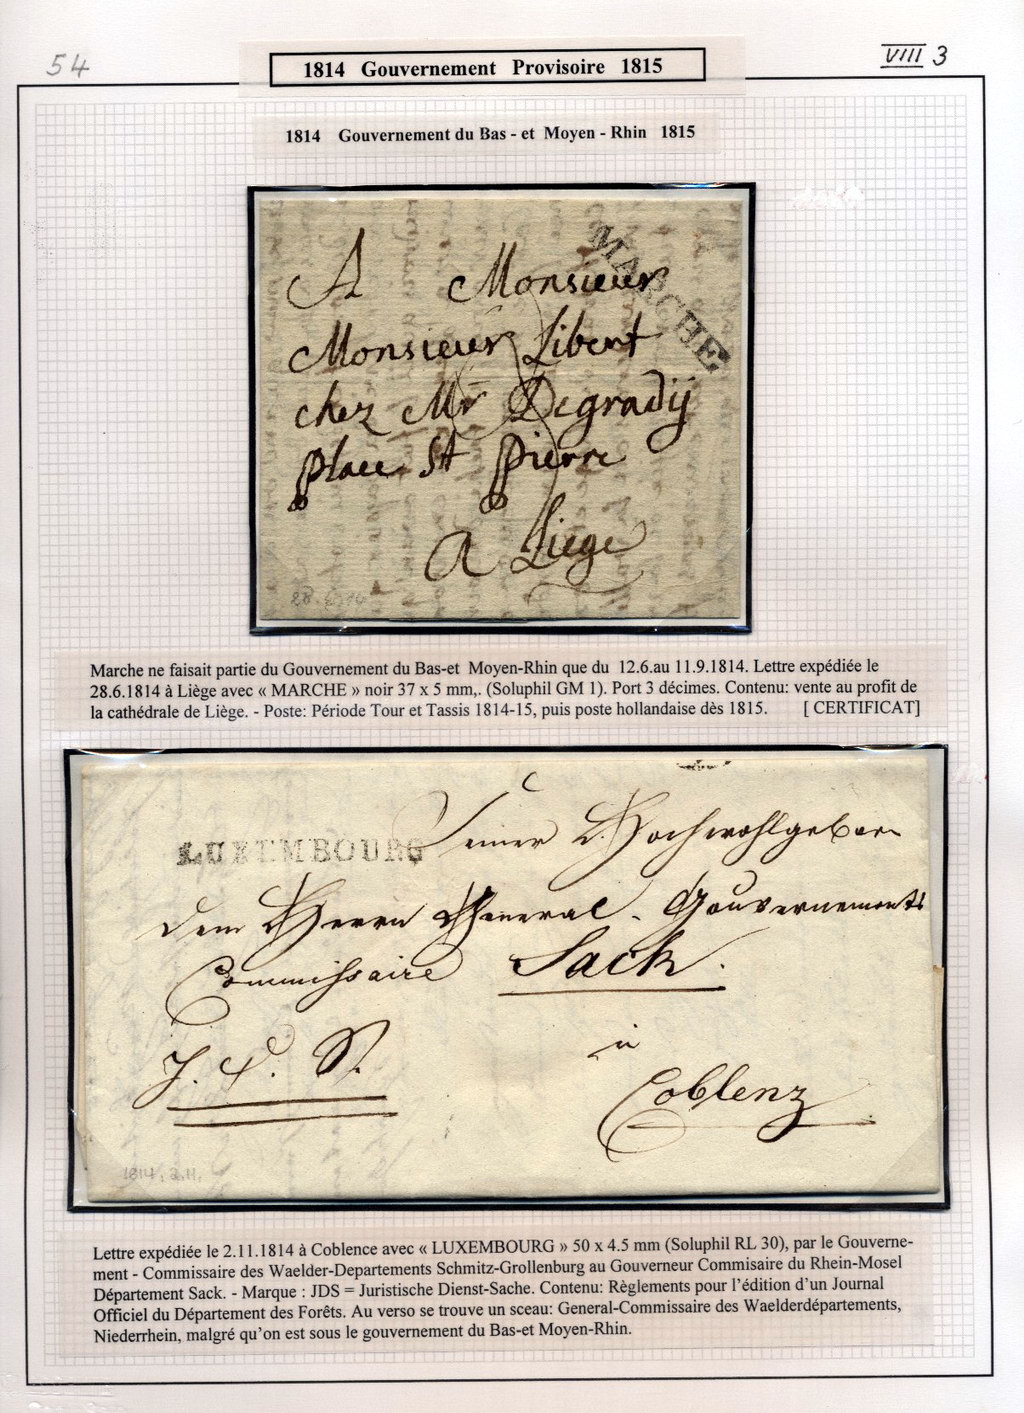 54
VIII 3
1814 Gouvernement Provisoire 1815
1814 Gouvernement du Bas - et Moyen - Rhin 1815
MARCHE
A Monsieur
Monsieur Libert
chez Mr Degradij
place St Pierre
a Liege
Marche ne faisait partie du Gouvernement du Bas-et Moyen-Rhin que du 12.6.au 11.9.1814. Lettre expédiée le
28.6.1814 à Liège avec « MARCHE » noir 37 x 5 mm,. (Soluphil GM 1). Port 3 décimes. Contenu: vente au profit de
la cathédrale de Liège. - Poste: Période Tour et Tassis 1814-15, puis poste hollandaise dès 1815. [ CERTIFICAT]
LUXEMBOURG
Seiner Hochwohlgeboren
dem Herrn General - Gouvernements
Commissaire Sack.
J. D. S.
in
Coblenz
1814. 2.11.
Lettre expédiée le 2.11.1814 à Coblence avec « LUXEMBOURG » 50 x 4.5 mm (Soluphil RL 30), par le Gouverne-
ment - Commissaire des Waelder-Departements Schmitz-Grollenburg au Gouverneur Commisaire du Rhein-Mosel
Département Sack. - Marque : JDS = Juristische Dienst-Sache. Contenu: Règlements pour l'édition d'un Journal
Officiel du Département des Forêts. Au verso se trouve un sceau: General-Commissaire des Waelderdépartements,
Niederrhein, malgré qu'on est sous le gouvernement du Bas-et Moyen-Rhin.